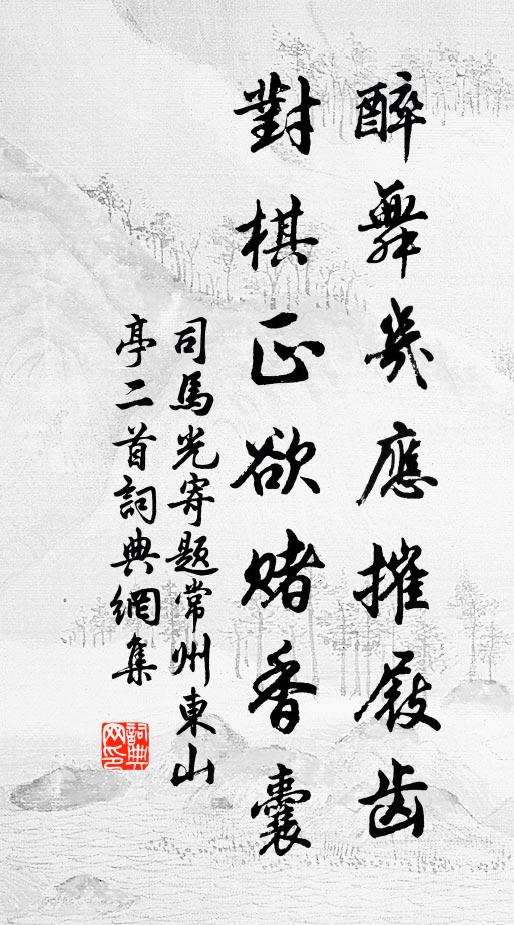 醉舞幾應摧屐齒
對棋正欲賭香囊
司馬光寄題常州東山
亭二首詞典網集
詞典
网印